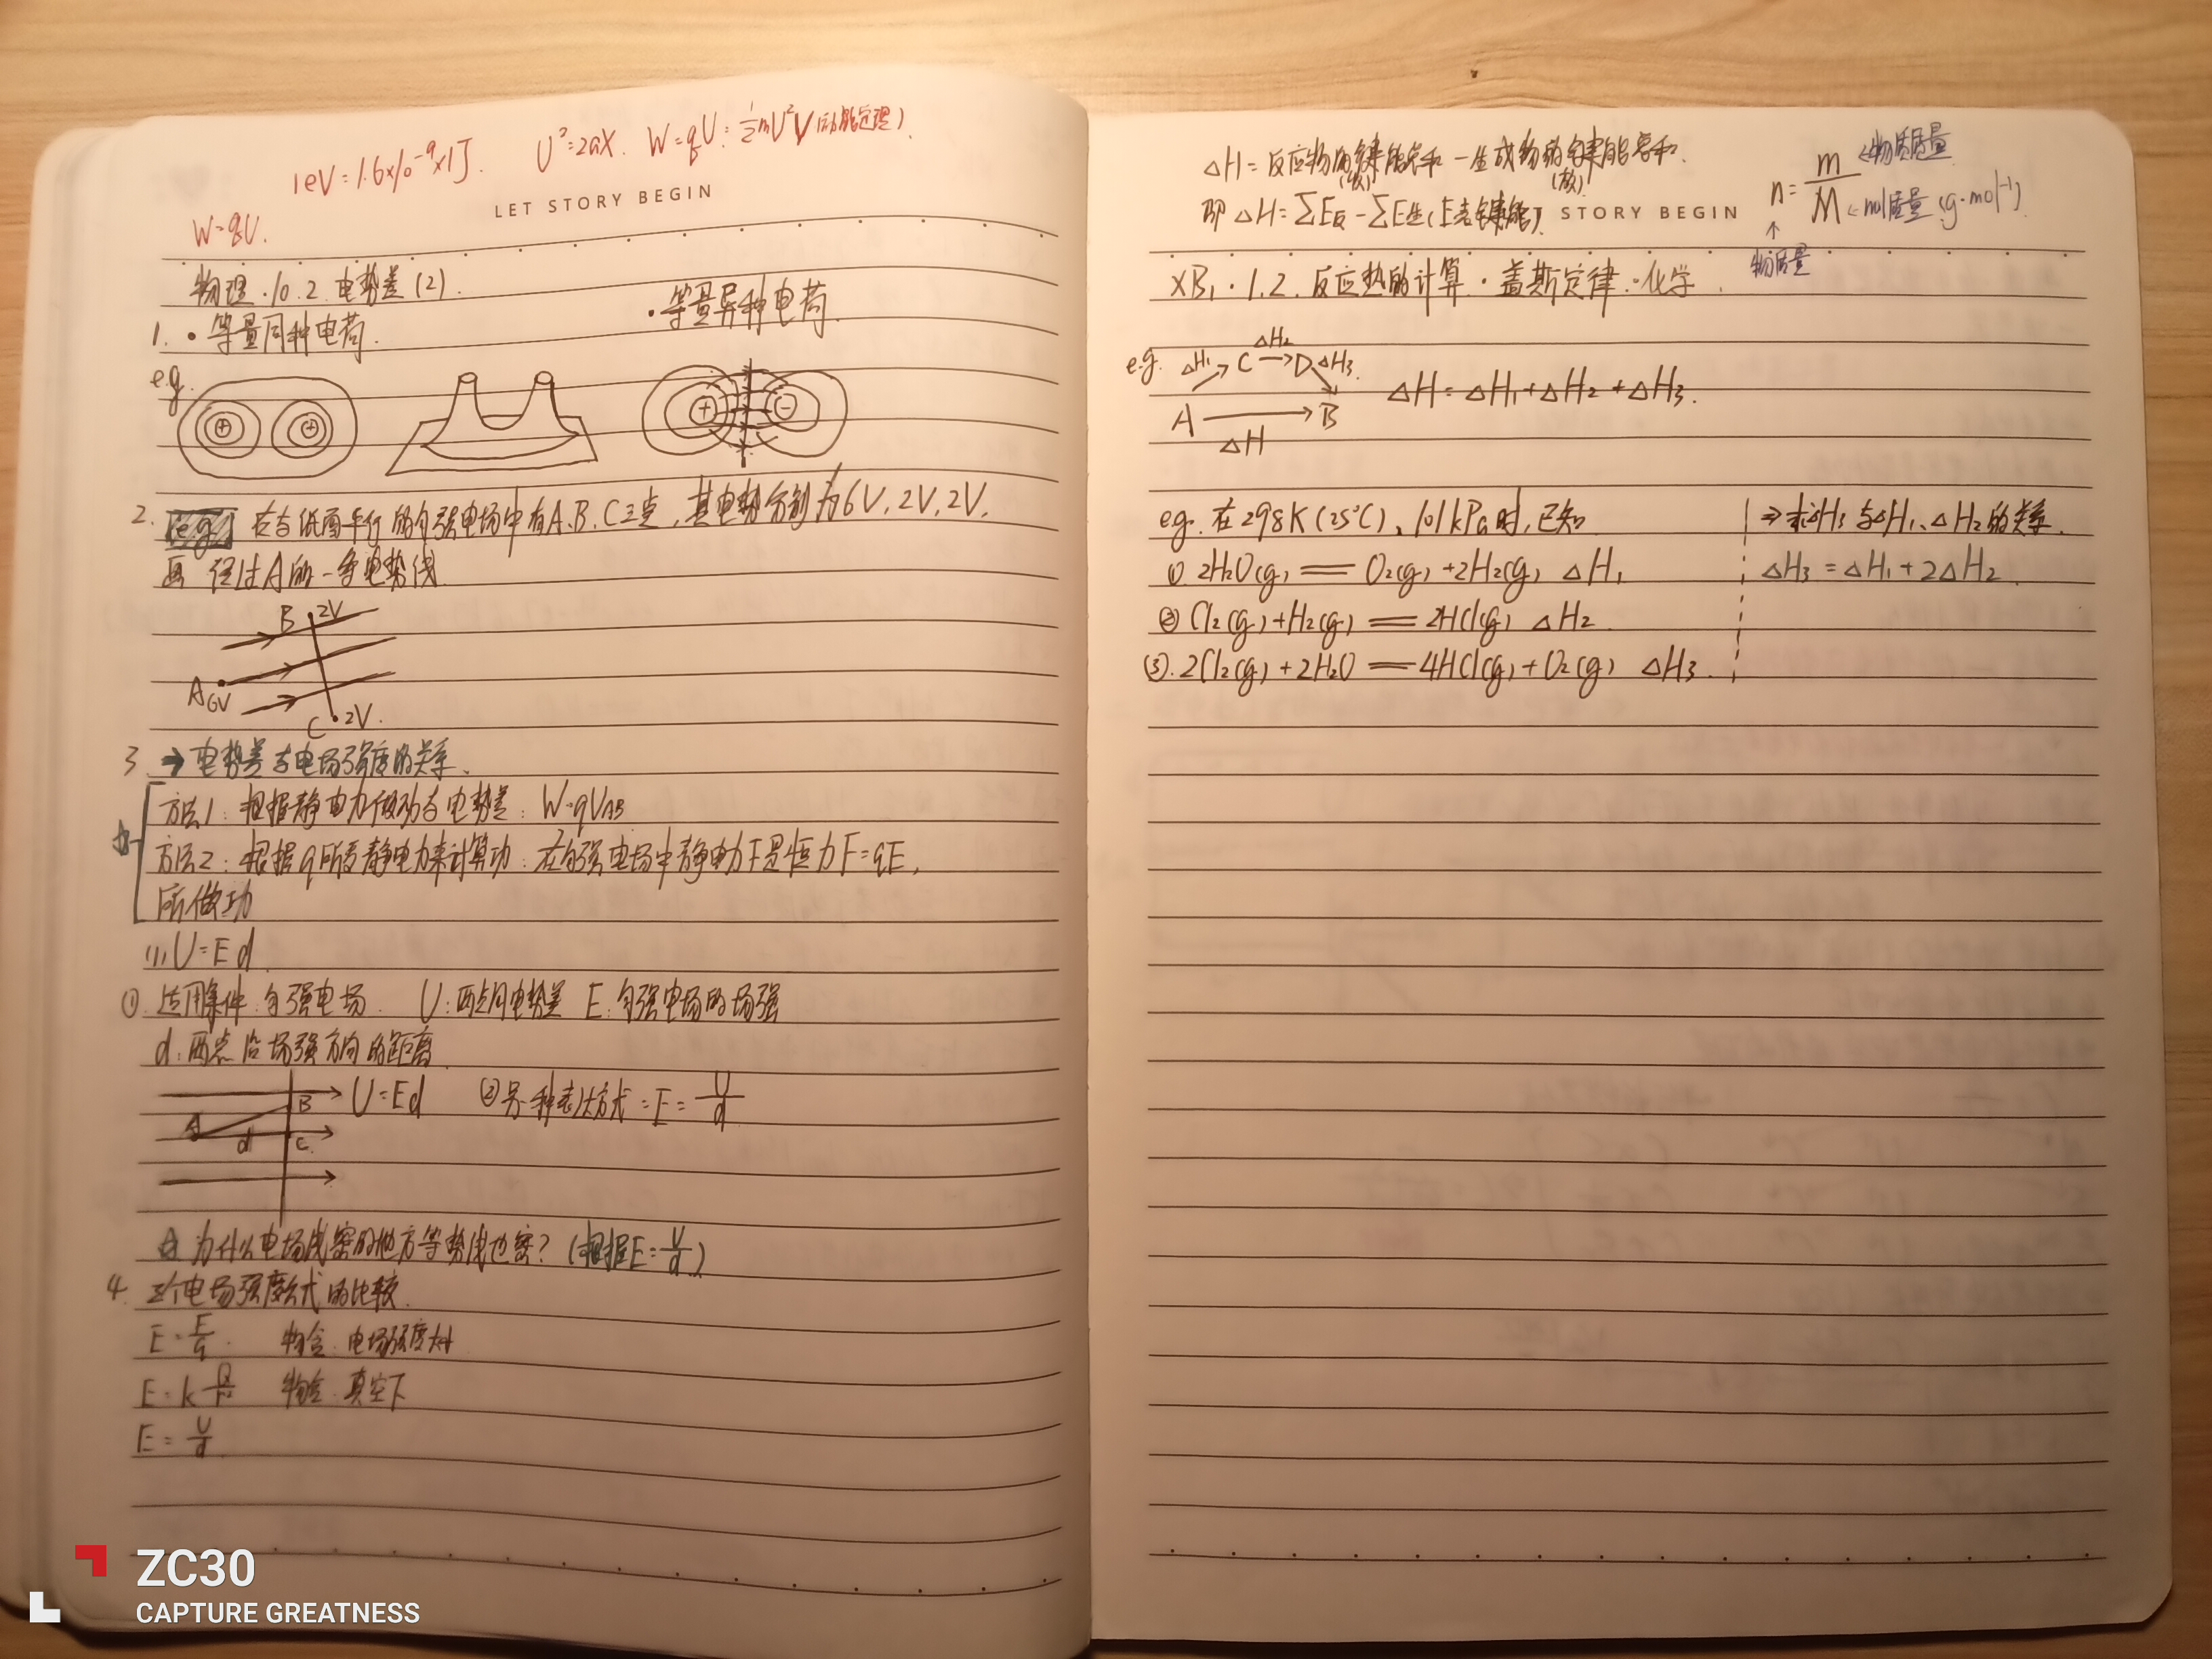 1eV=1.6×10⁻⁹×1J. U²=2aX. W=qU=½mU²V(动能定理).
LET STORY BEGIN
W=qU.
物理.10.2.电势差(2).
1. ·等量同种电荷.
·等量异种电荷.
e.g.
+ + + -
2. e.g. 在与纸面平行的匀强电场中有A、B、C三点,其电势分别为6V,2V,2V,
画 经过A的一条电势线
B 2V
A 6V
C 2V.
3. → 电势差与电场强度的关系.
方法1:根据静电力做功与电势差:W=qUAB
方法2:根据q所受静电力来计算功:在匀强电场中静电力F是恒力F=qE,
所做功
(1)U=Ed.
①.适用条件:匀强电场. U:两点间电势差 E:匀强电场的场强
d:两点沿场强方向的距离
B U=Ed ②另一种表达方式:E=U/d
A d C.
☆为什么电场线密的地方等势线也密?(根据E=U/d)
4. 三个电场强度公式的比较.
E=F/q. 电场强度
E=kQ/r² 真空下
E=U/d
ZC30
CAPTURE GREATNESS
△H=反应物的键能总和-生成物的键能总和.
(吸) (放)
即△H=∑E反-∑E生(E表键能) STORY BEGIN
n=m/M
←物质质量
←mol质量(g·mol⁻¹)
↑
物质量
XB₁·1.2.反应热的计算·盖斯定律·化学.
e.g. △H₁ C △H₂ D △H₃.
A → B △H=△H₁+△H₂+△H₃.
△H
e.g.在298K(25℃)、101kPa时,已知 ⇒求△H₃与△H₁、△H₂的关系.
① 2H₂O(g)══O₂(g)+2H₂(g) △H₁ △H₃=△H₁+2△H₂.
② Cl₂(g)+H₂(g)══2HCl(g) △H₂.
③.2Cl₂(g)+2H₂O══4HCl(g)+O₂(g) △H₃.